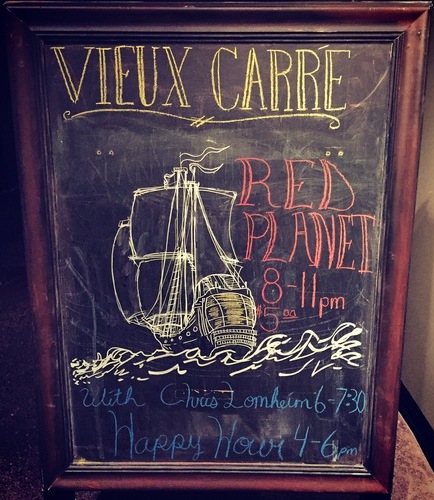 VIEUX CARRÉ
RED
PLANET
8-11pm
$5.00
With Chris Lomheim 6-7:30
Happy Hour 4-6pm